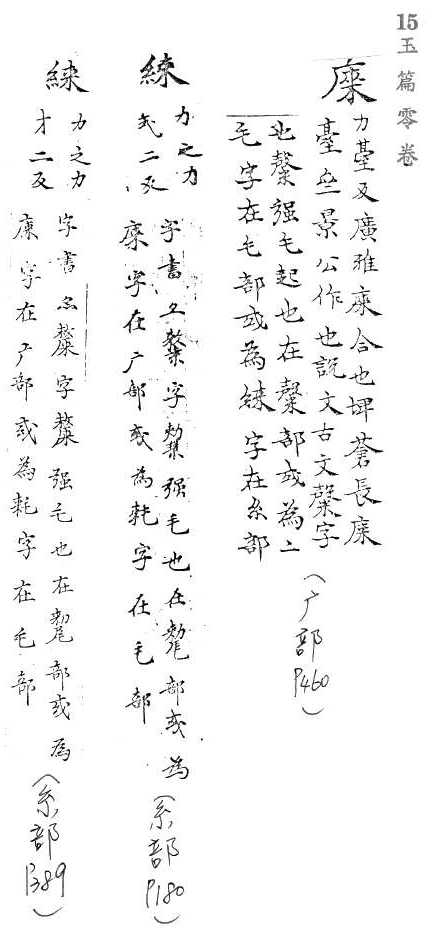 15 玉篇零卷
庲
力臺反廣雅庲合也埤蒼長庲
臺景公作也說文古文斄字
也斄强毛起也在斄部或為〻
毛字在毛部或為綀字在糸部
(广部 P460)
綀
力之力
戈二反
字書亦斄字斄强毛也在斄部或為
庲字在广部或為耗字在毛部
(糸部 P180)
綀
力之力
才二反
字書亦斄字斄强毛也在斄部或為
庲字在广部或為耗字在毛部
(糸部 P389)